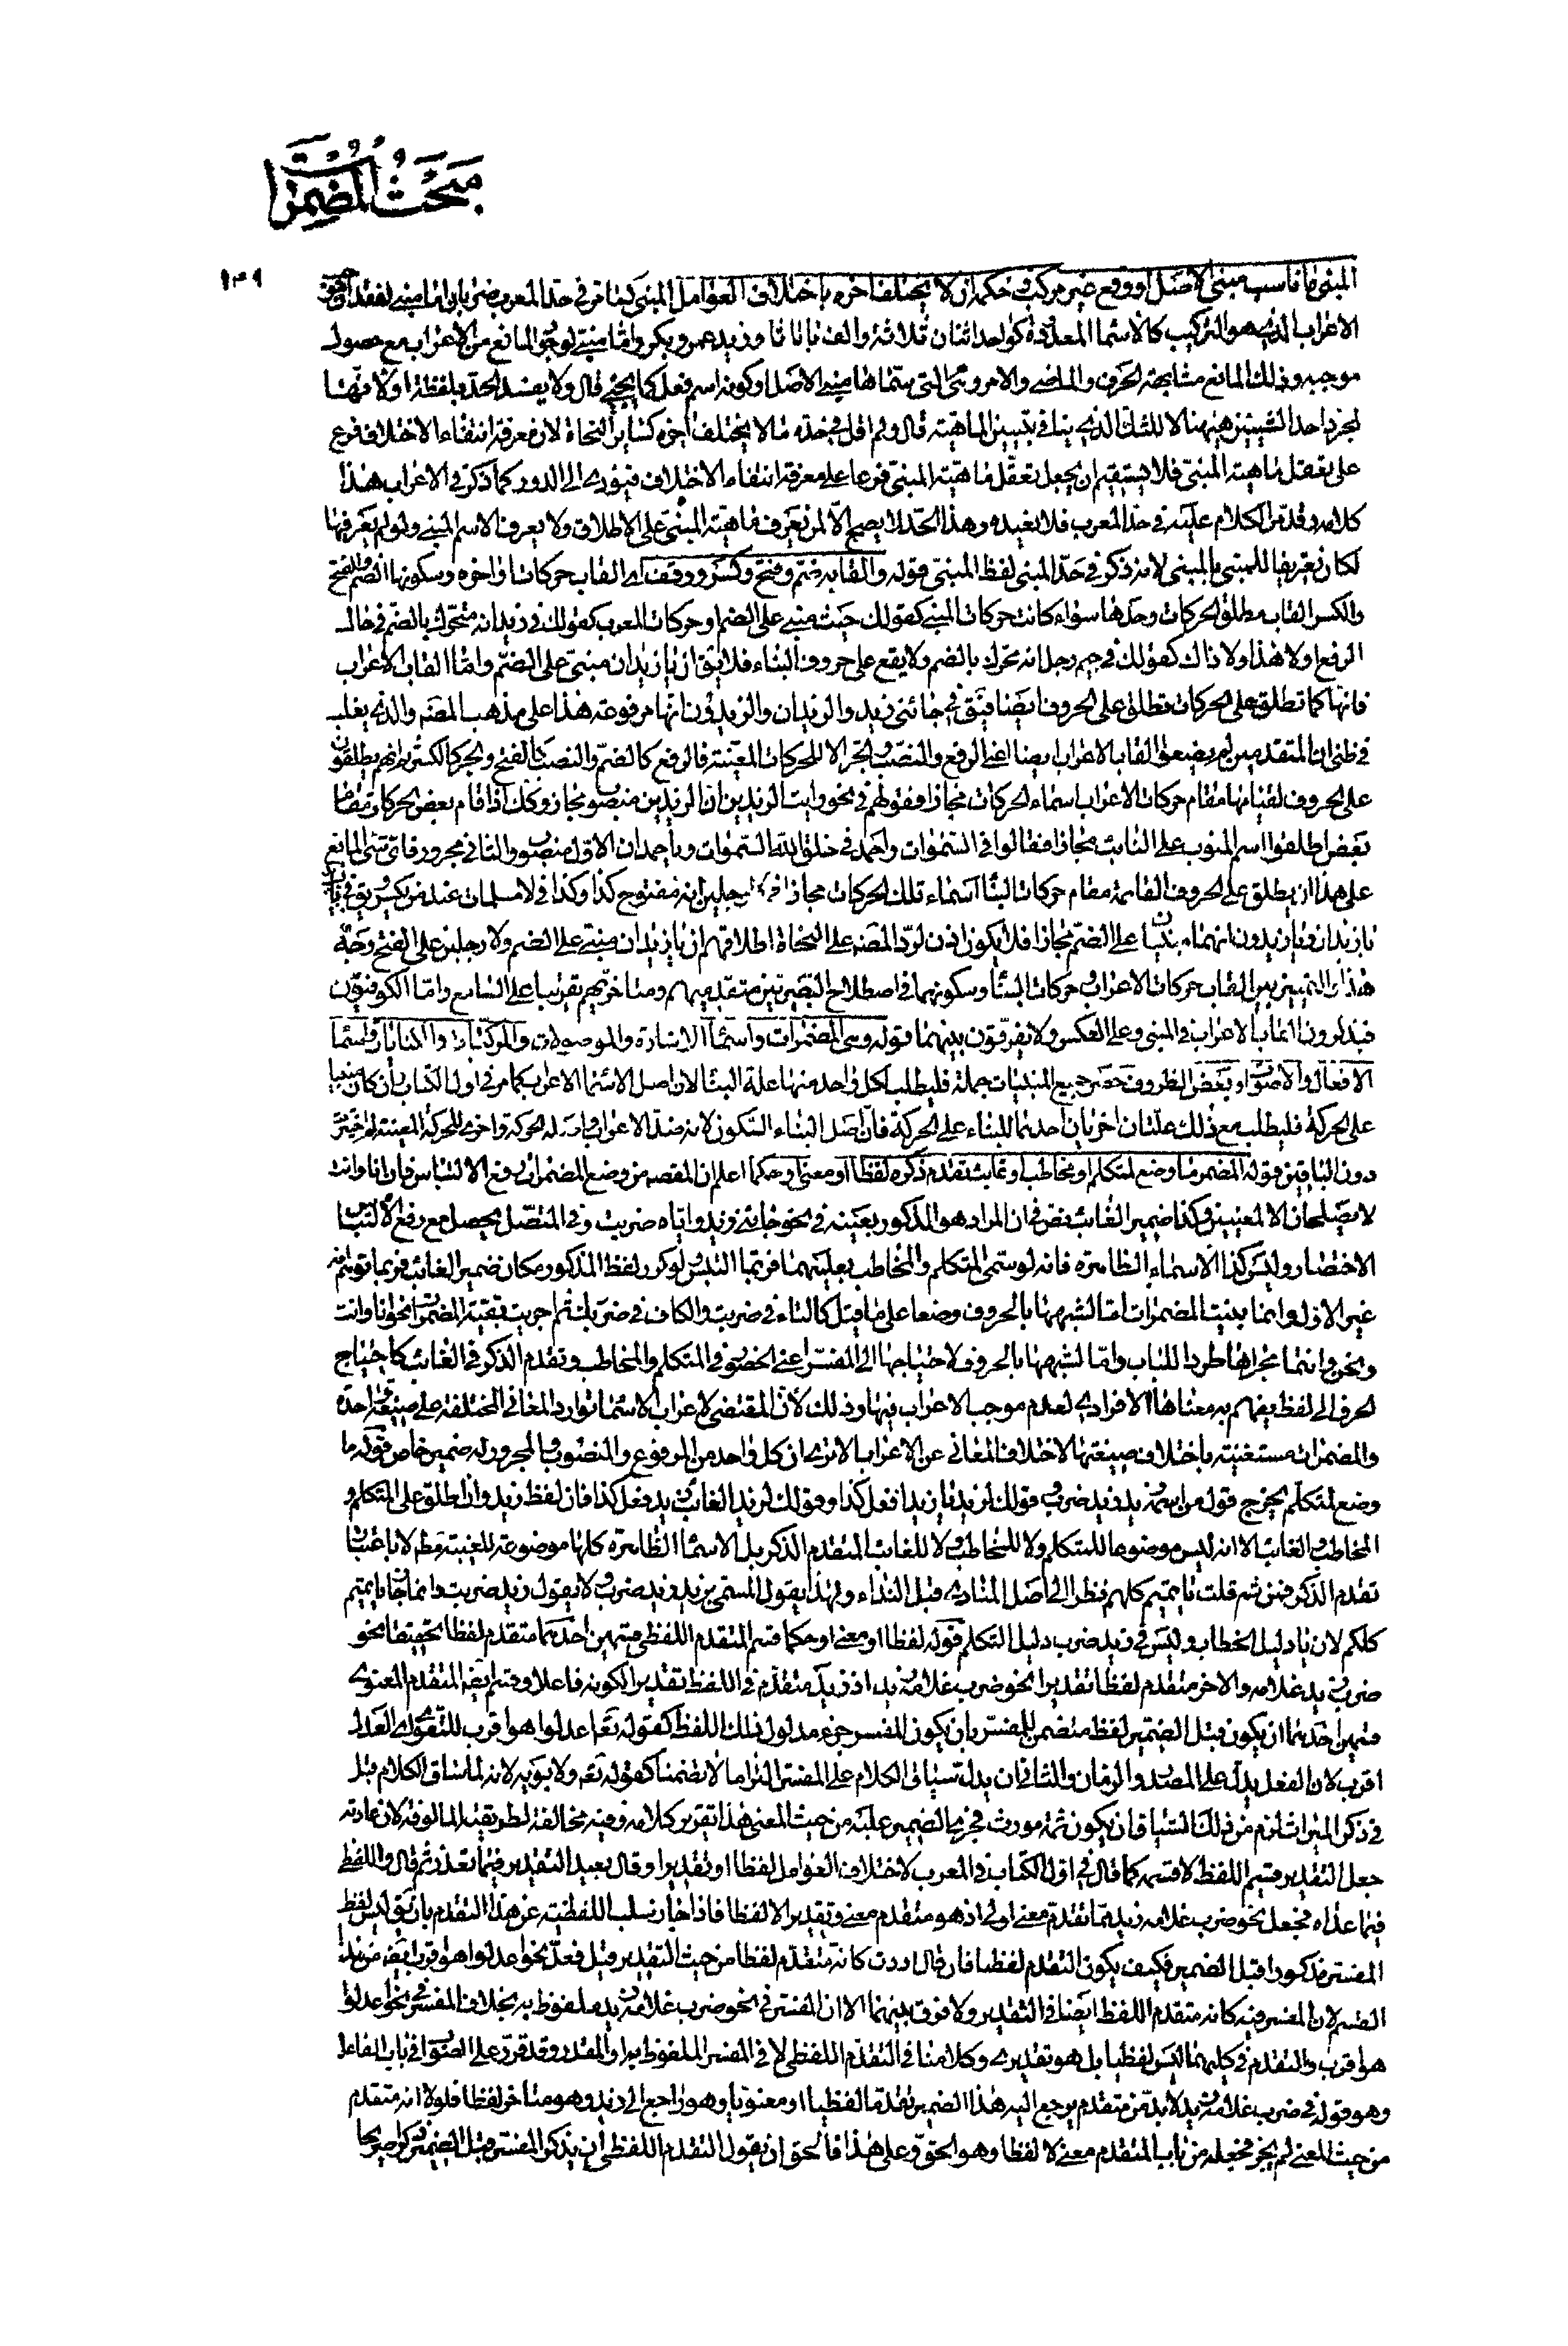 مبحث المضمرات
١٤٩
المبنى ما ناسب مبنى الاصل او وقع غير مركب وحكمه ان لا يختلف اخره باختلاف العوامل المبنى كما مر فى حد المعرب ضربان اما مبنى لفقدان موجب
الاعراب الذى هو التركيب كالاسماء المعددة كواحد اثنان ثلاثة والف با تا ثا وزيد عمرو بكر واما مبنى لوجود المانع من الاعراب مع حصول
موجبه وذلك المانع مشابهة الحرف والماضى والامر وهى التى سماها مبنى الاصل او كونه اسم فعل كما يجئ قال ولا يفسد الحد بلفظة او لانها
لمجرد احد الشيئين هيهنا لا للشك الذى ينافى تبيين الماهية قال ولم اقل فى حده ما لا يختلف اخره كساير النحاة لان معرفة انتفاء الاختلاف فرع
على تعقل ماهية المبنى فلا يستقيم ان يجعل تعقل ماهية المبنى فرعا على معرفة انتفاء الاختلاف فيؤدى الى الدور كما ذكر فى الاعراب هذا
كلامه وقد مر الكلام عليه فى حد المعرب فلا نعيده وهذا الحد لا يصح الا لمن يعرف ماهية المبنى على الاطلاق ولا يعرف الاسم المبنى ولو لم يعرفها
لكان تعريفا للمبنى بالمبنى لانه ذكر فى حد المبنى لفظ المبنى قوله والقابه ضم وفتح وكسر ووقف اى القاب حركات اواخره وسكونها الضم والفتح
والكسر القاب مطلق الحركات وحدها سواء كانت حركات المبنى كقولك حيث مبنى على الضم او حركات المعرب كقولك فى زيد انه متحرك بالضم فى حال
الرفع او لا هذا ولا ذاك كقولك فى جيم رجل انه متحرك بالضم ولا يقع على حروف البناء فلا يق ان يا زيدان مبنى على الضم واما القاب الاعراب
فانها كما تطلق على الحركات تطلق على الحروف ايضا فيق فى جائنى زيد والزيدان والزيدون انها مرفوعة هذا على مذهب المصنف والذى يغلب
فى ظنى ان المتقدمين لم يضعوا القاب الاعراب ايضا اعنى الرفع والنصب والجر الا للحركات المعينة فالرفع كالضم والنصب كالفتح والجر كالكسر ثم انهم يطلقون
على الحروف لقيامها مقام حركات الاعراب اسماء الحركات مجازا فقولهم فى نحو رايت الزيدين ان الزيدين منصوب مجاز وكذا اذا قام بعض الحركات مقام
بعض اطلقوا اسم المنوب على النائب مجازا فقالوا فى السموات واحمد فى خلق الله السموات وباحمد ان الاول منصوب والثانى مجرور فاى شئ المانع
على هذا ان يطلق على الحروف القائمة مقام حركات البناء اسماء تلك الحركات مجازا رجلين انه مفتوح كذا وكذا فى لا مسلمات عند من يكسر ويق فى
يا زيدان ويا زيدون انهما مبنيان على الضم مجازا فلا يكون اذن لرد المصنف على النحاة اطلاقهم ان يا زيدان مبنى على الضم ولا رجلين على الفتح وجه
هذا والتمييز بين القاب حركات الاعراب وحركات البناء وسكونهما فى اصطلاح البصريين متقدميهم ومتاخريهم تقريبا على السامع واما الكوفيون
فيذكرون القاب الاعراب فى المبنى وعلى العكس ولا يفرقون بينهما قوله وهى المضمرات واسماء الاشارة والموصولات والمركبات والكنايات واسماء
الافعال والاصوات وبعض الظروف حصر جميع المبنيات جملة فليطلب لكل واحد منها علة البناء لان اصل الاسماء الاعراب كما مر فى اول الكتاب وان كان مبنيا
على الحركة فليطلب مع ذلك علتان اخريان احديهما للبناء على الحركة فان اصل البناء السكون لانه ضد الاعراب واصله الحركة واخرى للحركة المعينة لم اختيرت
دون الباقيتين قوله المضمر ما وضع لمتكلم او مخاطب او غائب تقدم ذكره لفظا او معنى او حكما اعلم ان المقصود من وضع المضمرات رفع الالتباس فان انا وانت
لا يصلحان الا لمعينين وكذا ضمير الغائب نص فى ان المراد هو المذكور بعينه فى نحو جائنى زيد واياه ضربت وفى المتصل يحصل مع رفع الالتباس
الاختصار وليس كذا الاسماء الظاهرة فانه لو سمى المتكلم والمخاطب بعلميهما فربما التبس ولو كرر لفظ المذكور مكان ضمير الغائب فربما توهم انه
غير الاول وانما بنيت المضمرات اما لشبهها بالحروف وضعا على ما قيل كالتاء فى ضربت والكاف فى ضربك ثم اجريت بقية المضمرات نحو انا وانت
ونحن وانتما مجراها طردا للباب واما لشبهها بالحروف لاحتياجها الى المفسر اعنى الحضور فى المتكلم والمخاطب وتقدم الذكر فى الغائب كاحتياج
الحرف الى لفظ يفهم به معناها الافرادى لعدم موجب الاعراب فيها وذلك لان المقتضى لاعراب الاسماء توارد المعانى المختلفة على صيغة واحدة
والمضمرات مستغنية باختلاف صيغتها لاختلاف المعانى عن الاعراب الا ترى ان كل واحد من المرفوع والمنصوب والمجرور له ضمير خاص قوله ما
وضع لمتكلم يخرج قول من اسمه زيد زيد ضرب وقولك لزيد يا زيد افعل كذا وقولك لزيد الغائب زيد فعل كذا فان لفظ زيد وان اطلق على المتكلم و
المخاطب والغائب الا انه ليس موضوعا للمتكلم ولا للمخاطب ولا للغائب المتقدم الذكر بل الاسماء الظاهرة كلها موضوعة للغيبة مطلقا لا باعتبار
تقدم الذكر فمن ثم قلت يا تميم كلهم نظرا الى اصل المنادى قبل النداء ولهذا يقول المسمى بزيد زيد ضرب ولا يقول زيد ضربت وانما جاز يا تميم
كلكم لان يا دليل الخطاب وليس فى زيد ضرب دليل التكلم قوله لفظا او معنى او حكما قسم المتقدم اللفظى قسمين احدهما متقدم لفظا تحقيقا نحو
ضرب زيد غلامه والاخر متقدم لفظا تقديرا نحو ضرب غلامه زيد اذ زيد متقدم فى اللفظ تقديرا لكونه فاعلا وقسم ايضا المتقدم المعنوى
قسمين احدهما ان يكون قبل الضمير لفظ متضمن للمفسر بان يكون المفسر جزء مدلول ذلك اللفظ كقوله تعالى اعدلوا هو اقرب للتقوى اى العدل
اقرب لان الفعل يدل على المصدر والزمان والثانى ان يدل سياق الكلام على المفسر التزاما لا تضمنا كقوله تعالى ولابويه لانه لما ساق الكلام قبل
فى ذكر الميراث لزم من ذلك السياق ان يكون ثمة مورث فجرى الضمير عليه من حيث المعنى هذا تقرير كلامه وفيه مخالفة لطريقته المالوفة لان عادته
جعل التقدير قسيم اللفظ لا قسمه كما قال فى اول الكتاب فى المعرب لاختلاف العوامل لفظا او تقديرا وقال بعيد التقدير فيما تعذر ثم قال واللفظى
فيما عداه فجعل نحو ضرب غلامه زيد مما تقدم معنى اولى اذ هو متقدم معنى وتقديرا لا لفظا فاذا جاز سلب اللفظية عن هذا التقدم بان يق ليس لفظ
المفسر مذكورا قبل الضمير فكيف يكون التقدم لفظيا فان قال اردت كانه متقدم لفظا من حيث التقدير قيل فعد نحو اعدلوا هو اقرب ايضا من هذا
القسم لان المفسر فيه كانه متقدم اللفظ ايضا فى التقدير ولا فرق بينهما الا ان المفسر فى نحو ضرب غلامه زيد ملفوظ به بخلاف المفسر فى نحو اعدلوا
هو اقرب والتقدم فى كليهما ليس لفظيا بل هو تقديرى وكلامنا فى التقدم اللفظى لا فى المفسر الملفوظ به او المقدر وقد قرر على الصواب فى باب الفاعل
وهو قوله فى ضرب غلامه زيد لا بد من متقدم يرجع اليه هذا الضمير تقدما لفظيا او معنويا وهو راجع الى زيد وهو متاخر لفظا فلولا انه متقدم
من حيث المعنى لم يجز فجعله من باب المتقدم معنى لا لفظا وهو الحق وعلى هذا فالحق ان يقول التقدم اللفظى ان يذكر المفسر قبل الضمير ذكرا صريحا